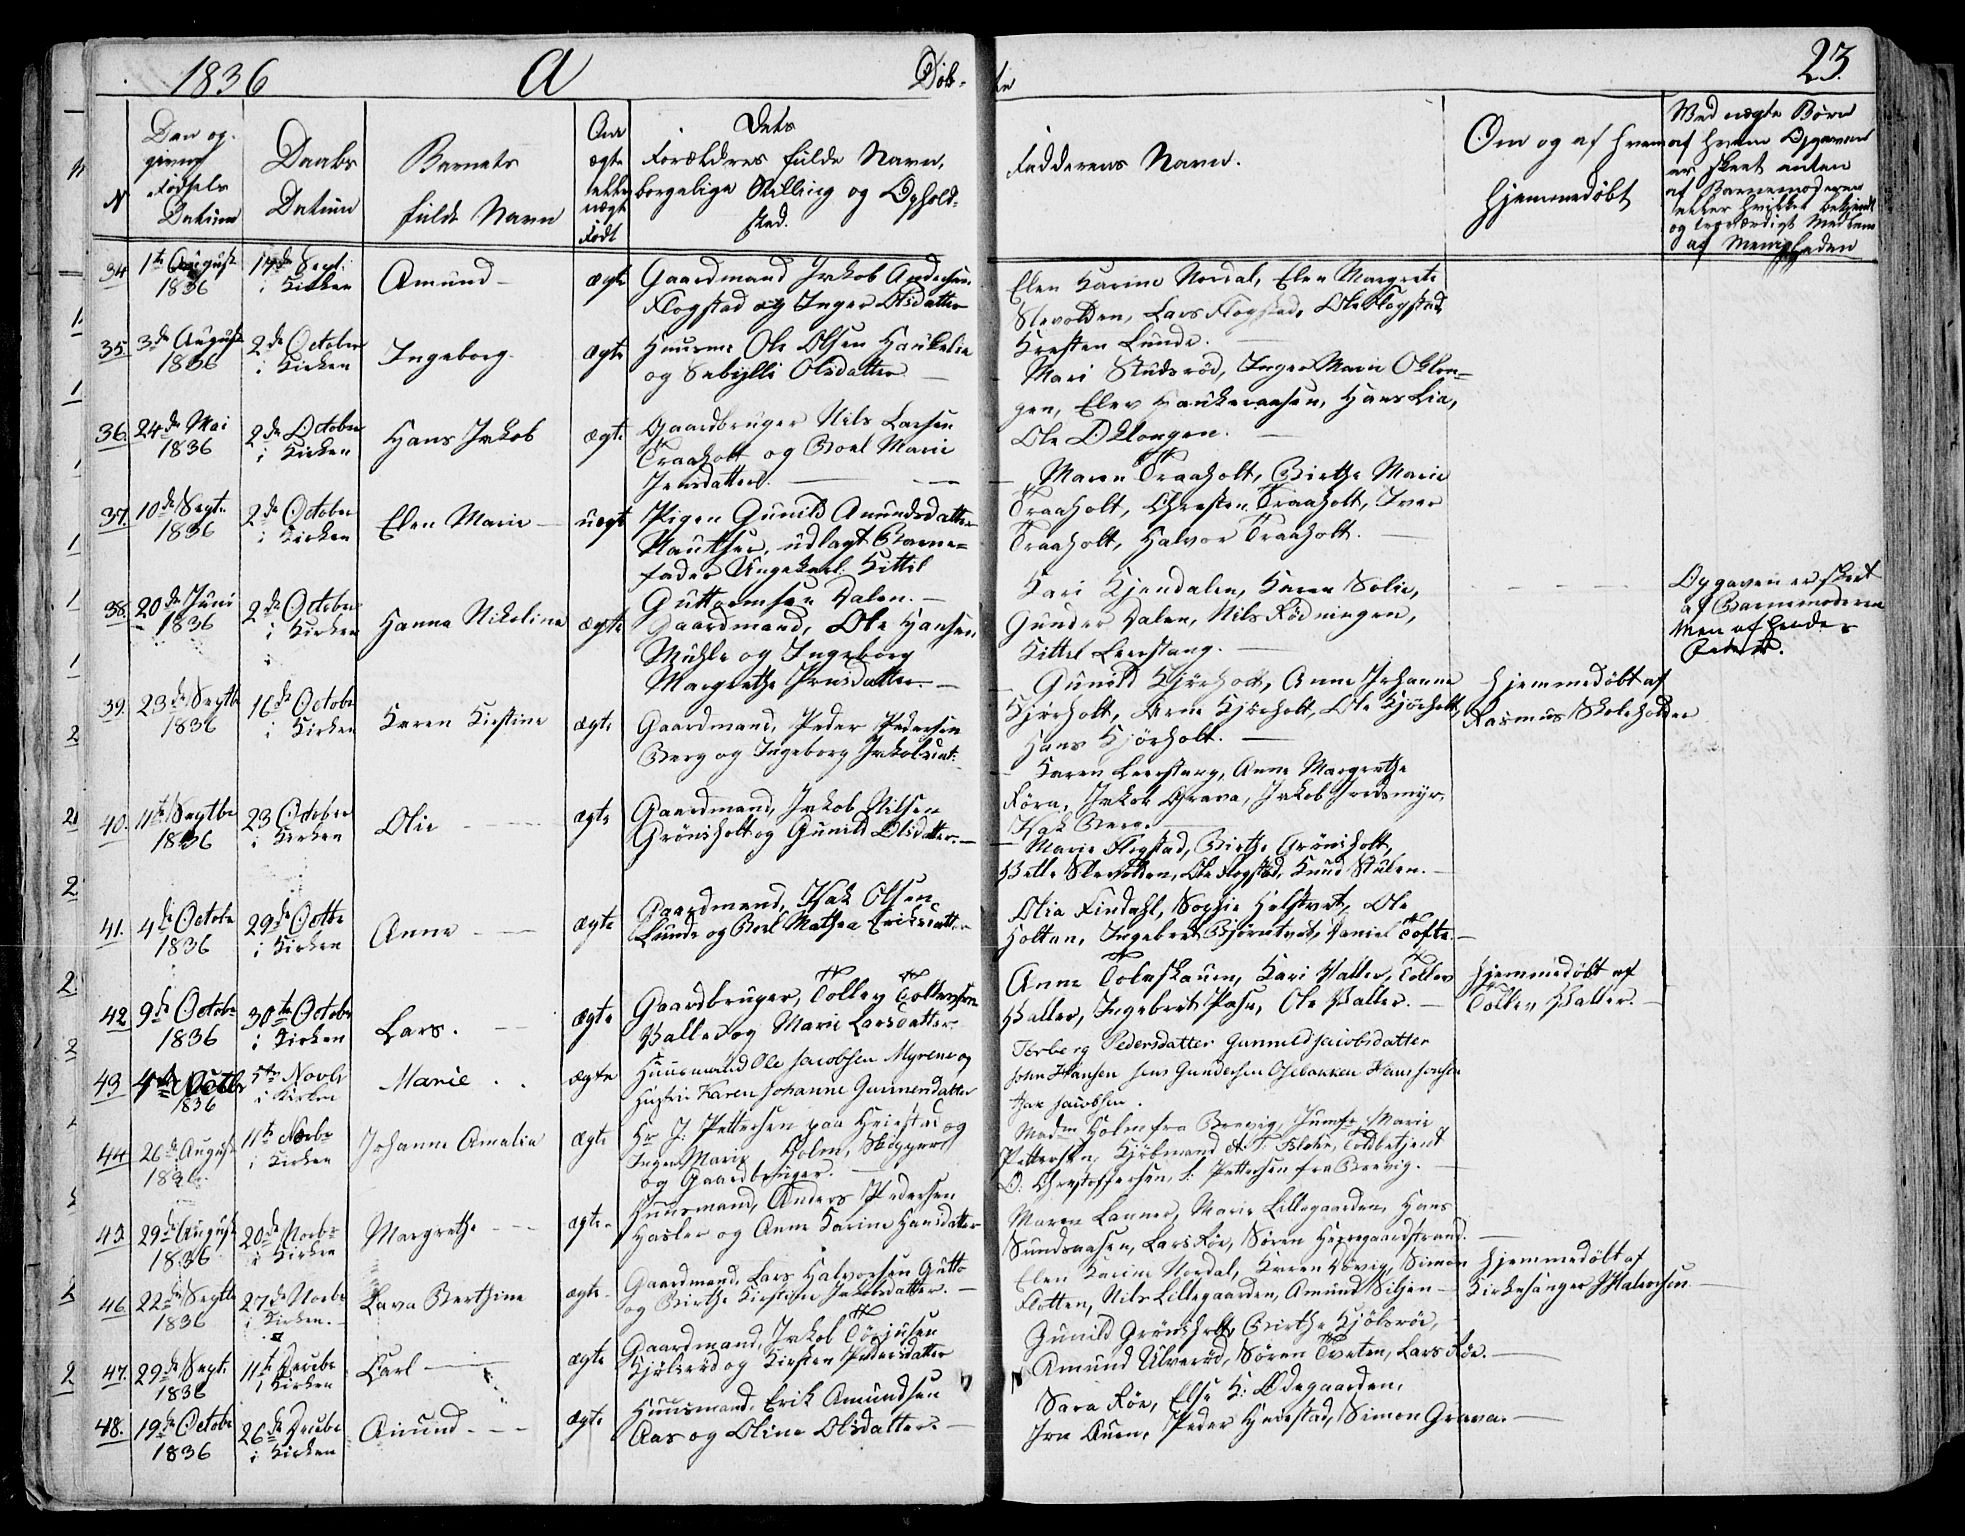 1836 A Døb-
te 23.
N
Den op-
givne
Fødsels
Datum
Daabs
Datum
Barnets
fulde Navn
Om
ægte
eller
uægte
Født
Dets
Forældres fulde Navn,
borgelige Stilling og Ophold-
sted.
Fadderens Navn.
Om og af hvem
hjemmedøbt
Ved uægte Børn
af hvem Opgaven
er skeet enten
af Barnemoderen
eller hvilket bekjendt
og troværdigt Medlem
af Menigheden
34 1te August 1836
17de Sept: i Kirken
Amund
ægte
Gaardmand Jakob Andersen
Flogstad og Inger Olsdatter
Elen Karine Nordal, Elen Margrete
Slevolden, Lars Flogstad, Ole Flogstad,
Kresten Lunde.
35. 3de August 1836
2de October i Kirken
Ingeborg
ægte
Huusm: Ole Olsen Haukelia
og Sebylli Olsdatter
Mari Studsrød, Inger Marie Oklon=
gen, Elev Haukeraasen, Hans Lia,
Ole Oklongen.
36. 24de Mai 1836
2de October i Kirken
Hans Jakob
ægte
Gaardbruger Nils Larsen
Traaholt og Boel Marie
Jensdatter.
Maren Traaholt, Birthe Marie
Traaholt, Christen Traaholt, Iver
Traaholt, Halvor Traaholt.
37. 10de Septr 1836
2de October i Kirken
Elen Marie
uægt
Pigen Gunild Amundsdatter
Nauthser, udlagt Barne=
fader Ungekarl Kittil
Guttormsen Dalen.
Kari Kjendalen, Karen Solie,
Gunder Dalen, Nils Rødningen,
Kittil Leerstang.
Opgaven er skeet
af Barnemoderen
Men af hendes
38. 20de Juni 1836
2de October i Kirken
Hanna Nikoline
ægte
Gaardmand, Ole Hansen
Mühle og Ingeborg
Margrethe Jensdatter
Gunild Kjørholt, Anne Johanne
Kjørholt, Arne Kjørholt, Ole Kjørholt,
Hans Kjørholt.
Hjemmedøbt af
Rasmus Skoleholder
39. 23de Septbr 1836
16de October i Kirken
Karen Kirstine
ægte
Gaardmand, Peder Pedersen
Berg og Ingeborg Jakobsdat:
Karen Leerstang, Anne Margrethe
Röra, Jakob Grava, Jakob Fredsmyr,
Isak Berg.
40. 11te Septbr 1836
23 October i Kirken
Olie
ægte
Gaardmand, Jakob Nilsen
Grönsholt og Gunild Olsdatter.
Marie Flogstad, Birthe Grönsholt,
Helle Slevolden, Ole Flogstad, Knud Stulen.
41. 4de Octobr 1836
29de Octbr i Kirken
Anne
ægte
Gaardmand, Isak Olsen
Lunde og Berl Mathea Eriksdatter
Olia Findahl, Sophie Helstvet, Ole
Holtan, Ingebret Bjørntvet, Daniel Tofte.
42 9de Octobr 1836
30te Octobr i Kirken
Lars.
ægte
Gaardbruger, Tollev Tollevsen
Valler og Marie Larsdatter
Anne Tolnskauen, Kari Valler, Tollev
Valler, Ingebret Pase, Ole Valler.
Hjemmedøbt af
Tollev Valler.
43. 4de Octbr 1836
5te Novbr i Kirken
Marie
ægte
Huusmand Ole Jacobsen Myrene og
Hustru Karen Johanne Gunnersdatter
Torberg Pedersdatter Gunnild Jacobsdatter
John Hansen Jens Gundersen Oxebakken Hans Jensen
Isak Jacobsen.
44 26de August 1836.
11te Novbr i Kirken
Johanne Amalia
ægte
Hr J: Pettersen paa Heiestad og
Inger Marie Holm, Skipper
og Gaardbruger.
Madm Holm fra Brevig, Jumfr Marie
Pettersen, Kjøbmand A. T. Bloken, Toldbetjent
O. Christoffersen, S. Pettersen fra Brevig.
45 29de August 1836
20de Novbr i Kirken
Margrethe
ægte
Huusmand, Anders Pedersen
Hasler og Anne Karine Hansdatter
Maren Lanner, Marie Lillegaarden, Hans
Sundsaasen, Lars Röe, Sören Herregaardstrand.
46. 22de Septbr 1836
27de Novbr i Kirken.
Lava Berthine
ægte
Gaardmand, Lars Halvorsen Gutto
og Birthe Kirstine Jakobsdatter.
Elen Karine Nordal, Karen Wevig, Simon
Flotten, Nils Lillegaarden, Amund Siljen
Hjemmedøbt af
Kirkesanger Halvorsen
47. 29de Sept: 1836
11te Decbr i Kirken
Carl
ægte
Gaardmand, Jakob Törjusen
Kjölsröd og Kirsten Pedersdatter
Gunild Grönsholt, Birthe Kjölsröd,
Amund Ulveröd, Sören Tveten, Lars Röe.
48. 19de Octobr 1836
26de Decbr i Kirken
Amund
ægte
Huusmand, Erik Amundsen
Aas og Oline Olsdatter
Sara Röe, Else K: Ødegaarden,
Jon Auen, Peder Heiestad, Simon Grava.